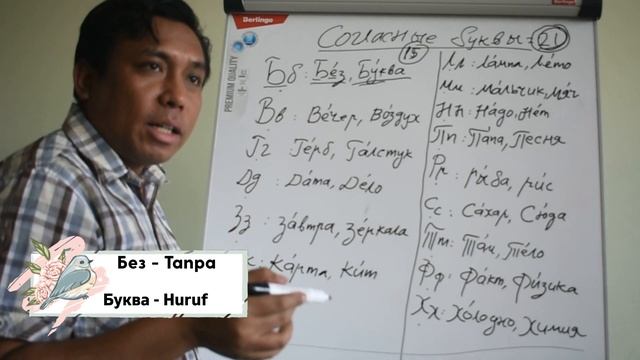 Berlingo
Berlingo
PREMIUM QUALITY
Согласные буквы = 21
15
Бб : Бе́з, Бу́ква
Вв : Ве́чер, Во́здух
Гг Ге́рб, Га́лстук
Дд : Да́та, Де́ло
Зз : За́втра, Зе́ркала
к : Ка́рта, Ки́т
Лл : Ла́мпа, Ле́то
Мм : Ма́льчик, мя́ч
Нн : На́до, Не́т
Пп : Па́па, Пе́сня
Рр : ры́ба, ри́с
Сс : Са́хар, Сюда
Тт : Та́м, Те́ло
Фф : Фа́кт, Фи́зика
Хх : Хо́лодно, Хи́мия
Без - Tanpa
Буква - Huruf